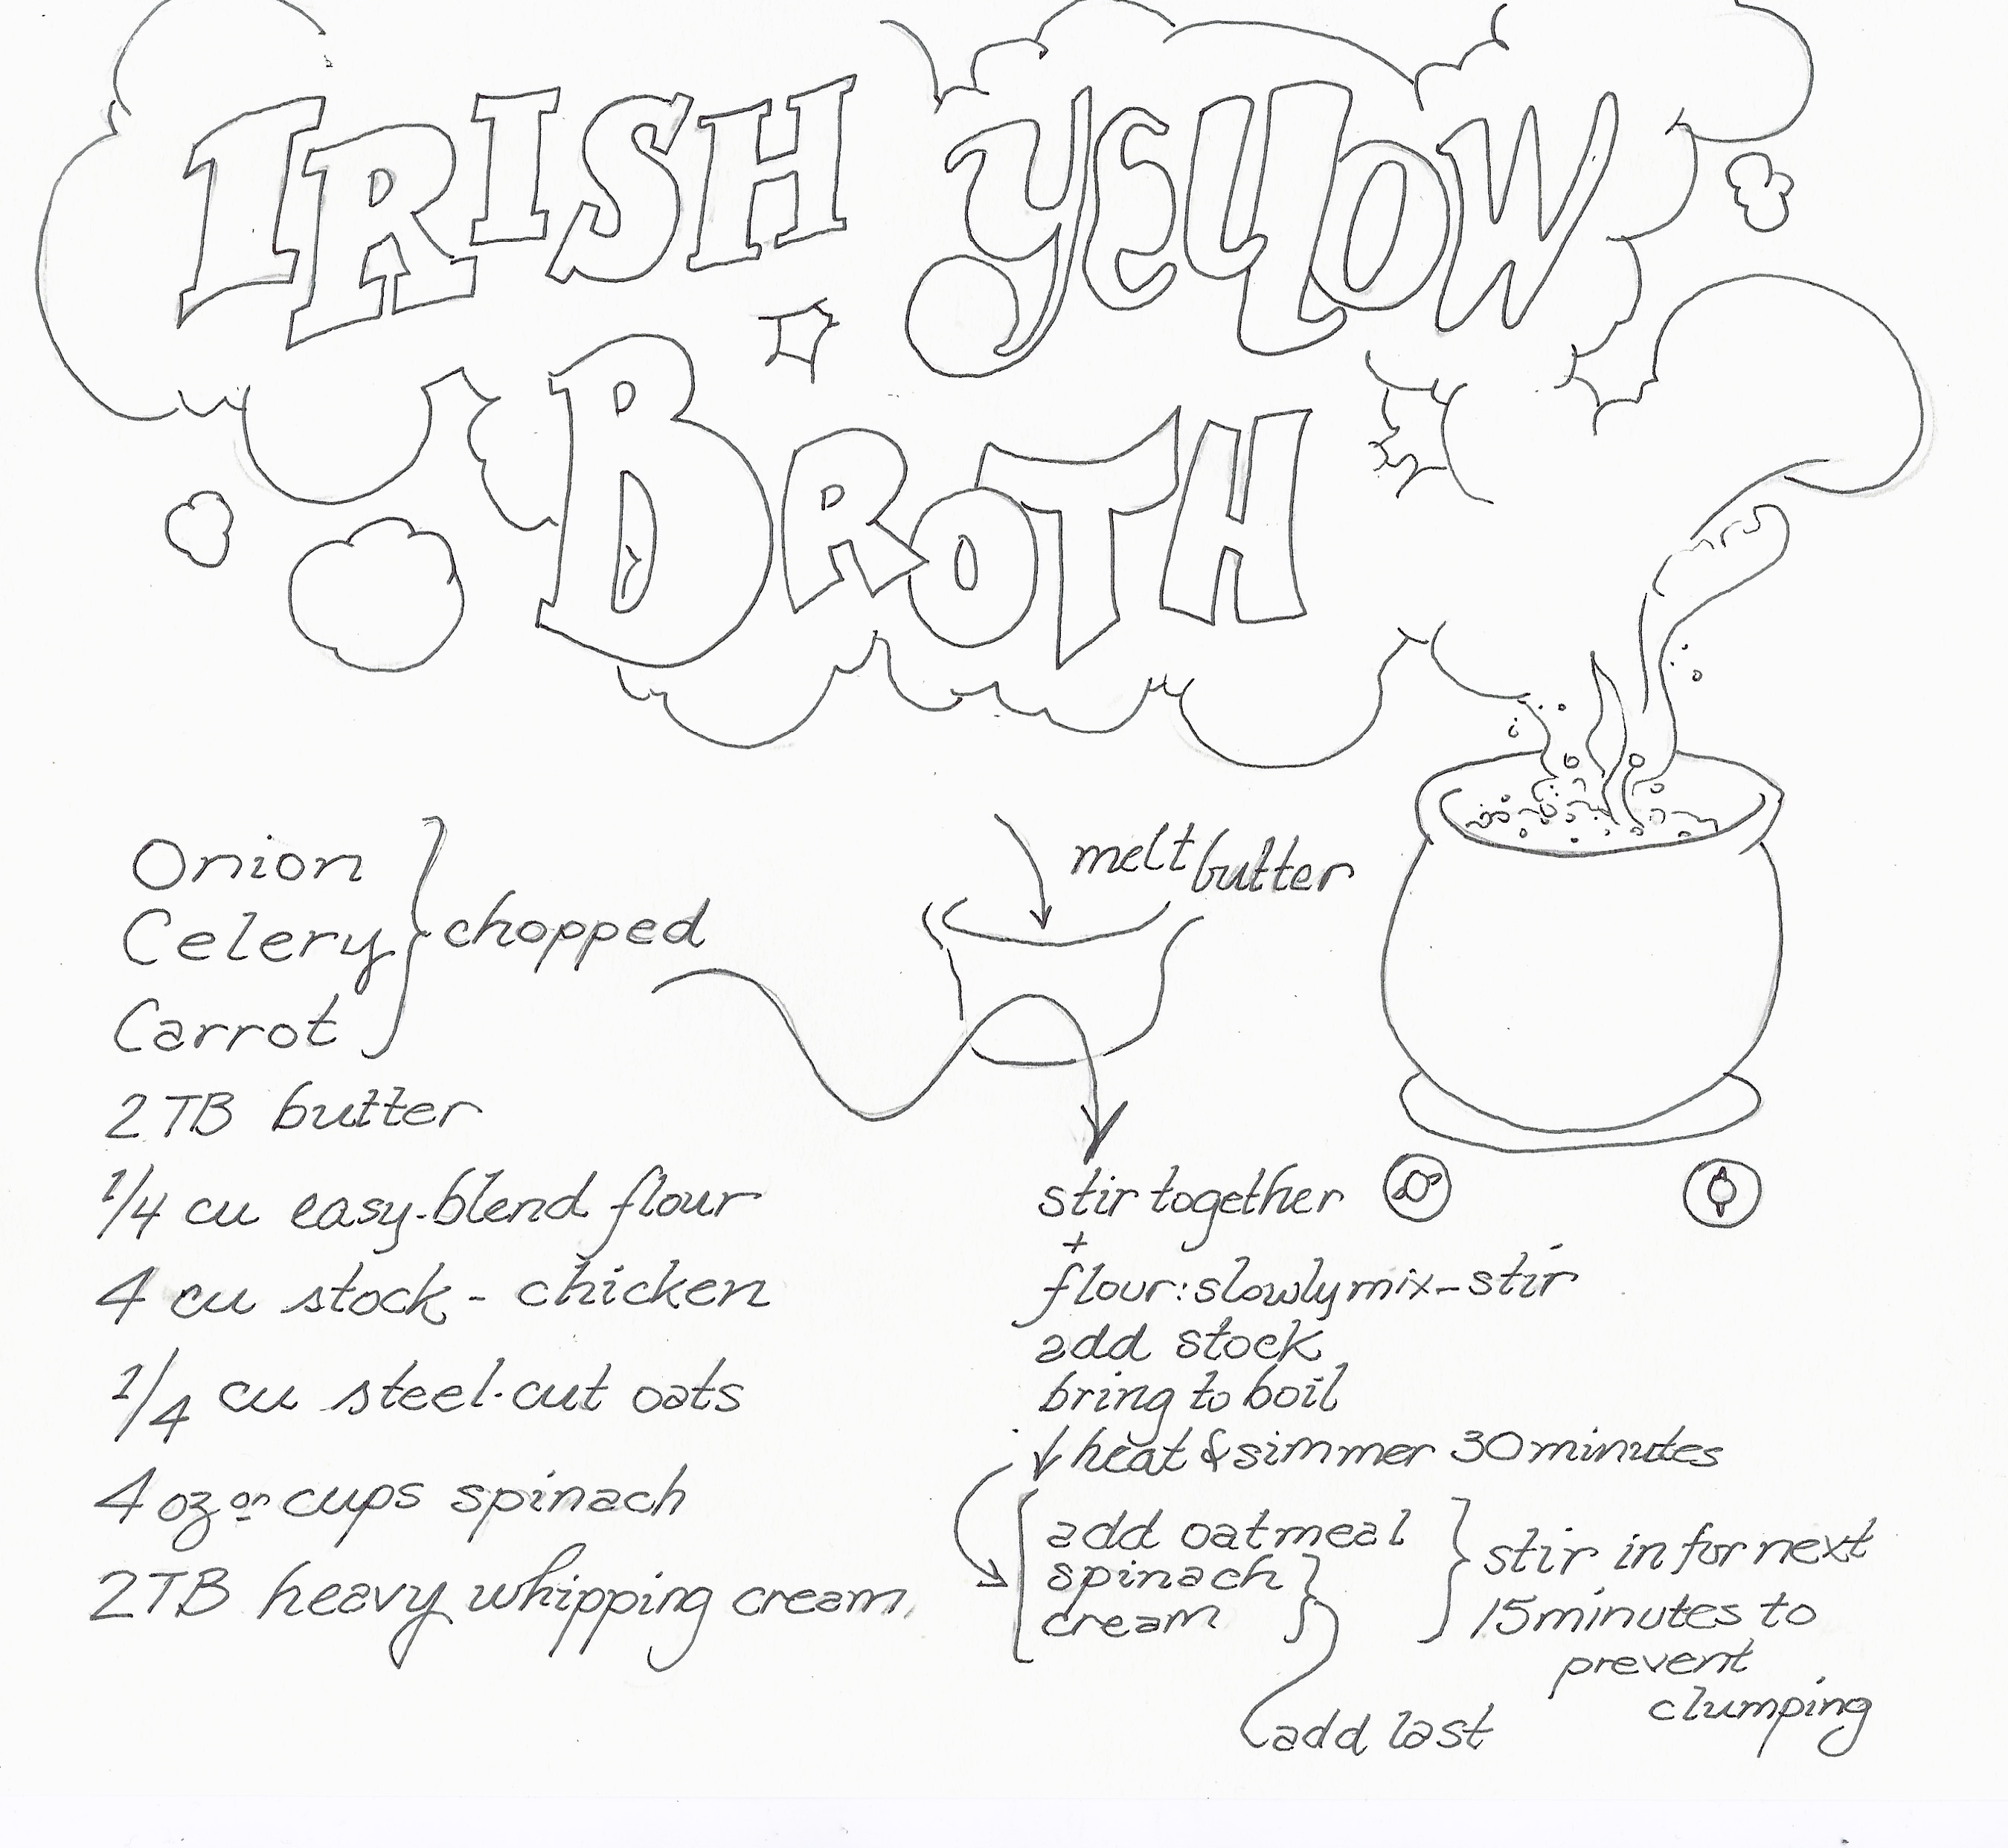 IRISH YELLOW
BROTH
Onion
Celery
Carrot
chopped
2 TB butter
1/4 cu easy-blend flour
4 cu stock - chicken
1/4 cu steel-cut oats
4 oz or cups spinach
2 TB heavy whipping cream
melt butter
stir together
+
flour: slowly mix - stir
add stock
bring to boil
↓ heat & simmer 30 minutes
add oatmeal
spinach
cream
stir in for next
15 minutes to
prevent
clumping
add last